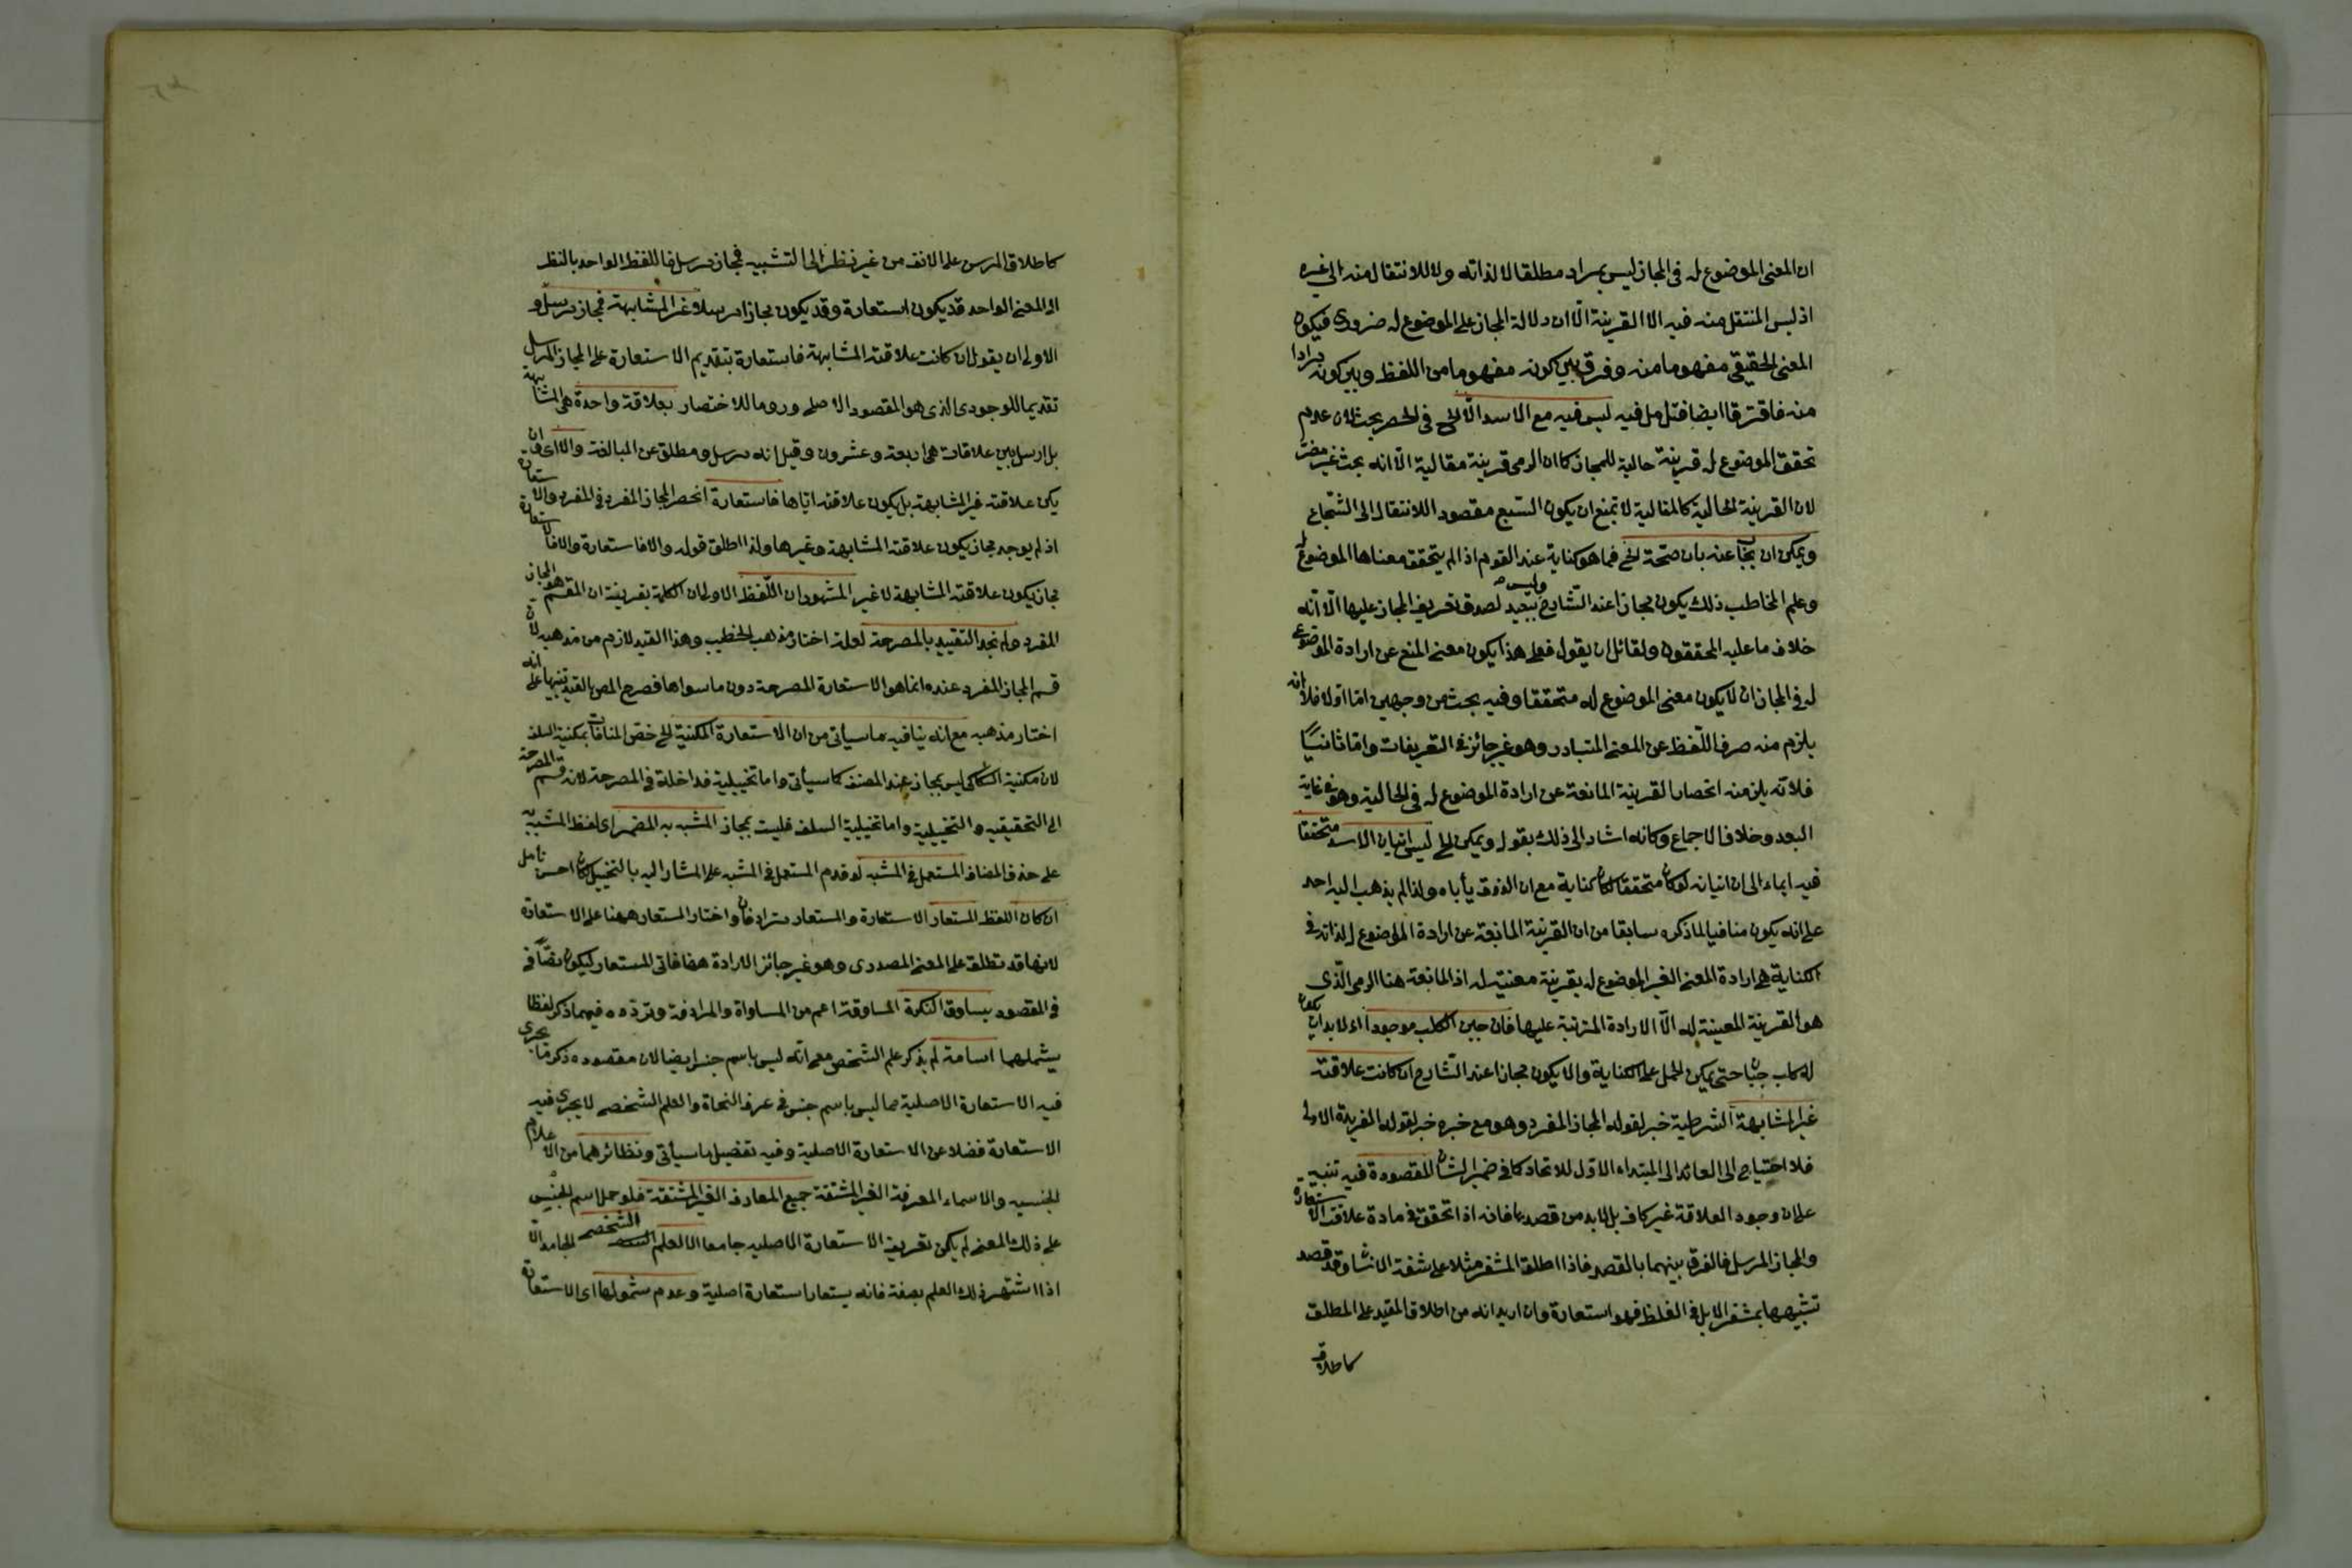 ان المعنى الموضوع له فى المجاز ليس بمراد مطلقا لا لذاته ولا للانتقال منه الى غيره
اذ ليس المنتقل منه فيه الا القرينة الّا ان دلالة المجاز على الموضوع له ضرورى فيكون
المعنى الحقيقى مفهوما منه وفرق بين كونه مفهوما من اللفظ وبين كونه مرادا
منه فافترقا ايضا فتأمل فيه ليس فيه مع الاسد الّا الخ فى الحصر بحث لان عدم
تحقق الموضوع له قرينة حالية للمجاز كما ان الرمى قرينة مقالية الّا انه بحث غير مضر
لان القرينة الحالية كالمقالية لا تمنع ان يكون السبع مقصودا للانتقال الى الشجاع
ويمكن ان يجاب عنه بان صحة الخ فما هو كناية عند القوم اذا لم يتحقق معناها الموضوع له
وعلم المخاطب ذلك يكون مجازا عند الشارح وليس ببعيد لصدق تعريف المجاز عليها الّا انّه
خلاف ما عليه المحققون ولقائل ان يقول فعلى هذا يكون معنى المنع عن ارادة الموضوع
له فى المجاز ان لا يكون معنى الموضوع له متحققا وفيه بحث من وجهين امّا اولا فلانه
يلزم منه صرف اللّفظ عن المعنى المتبادر وهو غير جائز فى التعريفات وامّا ثانيًا
فلانّه يلزمنه انحصار القرينة المانعة عن ارادة الموضوع له فى الحالية وهو فى غاية
البعد وخلاف الاجماع وكانه اشار الى ذلك بقوله ويمكن الخ ليس اتيان الاسد متحققا
فيه ايماء الى ان اتيانه لو كان متحققا لكان كناية مع ان الذوق يأباه ولذا لم يذهب اليه احد
على انه يكون منافيا لما ذكره سابقا من ان القرينة المانعة عن ارادة الموضوع له لذاته فى
الكناية هى ارادة المعنى الغير الموضوع له بقرينة معنيّة له اذ المانعة هنا الرمى الّذى
هو القرينة المعينة له الّا الارادة المترتبة عليها فان جبن الكلب موجود اذ لا بد ان يكون
له كلب جبان حتى يمكن الحمل على الكناية والا يكون مجازا عند الشارح ان كانت علاقته
غير المشابهة الشرطية خبر لقوله المجاز المفرد وهو مع خبره خبر لقوله الفريدة الاولى
فلا احتياج الى العائد الى المبتداء الاوّل للاتحاد كما فى ضمير الشان المقصودة فيه تنبيه
على ان وجود العلاقة غير كاف بل لابد من قصدها فانه اذا تحقق فى مادة علاقة الاستعارة
والمجاز المرسل فالفرق بينهما بالقصد فاذا اطلق المشفر مثلا على شفة الانسان وقد قصد
تشبيهها بمشفر الابل فى الغلظ فهو استعارة وان اريد انه من اطلاق المقيد على المطلق
كاطلاق
كاطلاق المرسن على الانف من غير نظر الى التشبيه فمجاز مرسل فاللفظ الواحد بالنظر
الى المعنى الواحد قد يكون استعارة وقد يكون مجازا مرسلا غير المشابهة فمجاز مرسل و
الاولى ان يقول ان كانت علاقته المشابهة فاستعارة بتقديم الاستعارة على المجاز المرسل
تقديما للوجودى الذى هو المقصود الاصلى وروما للاختصار بعلاقة واحدة هى المشابهة
بل ارسل بين علاقات هى اربعة وعشرون وقيل انه مرسل ومطلق عن المبالغة والا اى وان
يكن علاقته غير المشابهة بل يكون علاقته اياها فاستعارة انحصر المجاز المفرد فى المفرد والاستعارة
اذ لم يوجد مجاز يكون علاقته المشابهة وغيرها ولذا اطلق قوله والا فاستعارة والا فالاستعارة
مجاز يكون علاقته المشابهة لا غير المشهور ان اللّفظ الاولى ان الكلمة بقرينة ان المقسم هو المجاز
المفرد ولم نجد التقييد بالمصرحة لعله اختار مذهب الخطيب وهذا القيد لازم من مذهبه لان
قسم المجاز المفرد عنده انما هو الاستعارة المصرحة دون ما سواها فصرح المص بالقيد تنبيها على انه
اختار مذهبه مع انه ينافيه ما سيأتى من ان الاستعارة المكنية الخ خص المنافات بمكنية السلف
لان مكنية السكاكى ليس بمجاز عند المصنف كما سيأتى واما تخييلية فداخلة فى المصرحة لانه قسم المصرحة
الى التحقيقيه والتخييلية واما تخيلية السلف فليست بمجاز المشبه به المضمر اى لفظ المشبه به
على حذف المضاف المستعمل فى المشبه لو قدم المستعمل فى المشبه على المشار اليه بالتخييل كان احسن تأمل
ان كان اللفظ المستعار الاستعارة والمستعار مترادفان واختار المستعار ههنا على الاستعارة
لانها قد تطلق على المعنى المصدرى وهو غير جائز الارادة ههنا فاتى المستعار ليكون نصّا فى
فى المقصود بيساوق النكرة المساوقة اعم من المساواة والمرادفة وتردده فيهما ذكر لفظا
يشملهما اسامة لم يذكر علم الشخص مع انّه ليس باسم جنس ايضا لان مقصوده ذكر ما يجرى
فيه الاستعارة الاصلية مما ليس باسم جنس فى عرف النحاة والعلم الشخصى لا يجرى فيه
الاستعارة فضلا عن الاستعارة الاصلية وفيه تفصيل ما سيأتى ونظائرهما من الاعلام
الجنسيه والاسماء المعرفة الغير المشتقة جميع المعارف الغير المشتقة فلو حمل اسم الجنس
على ذلك المعنى لم يكن تعريف الاستعارة الاصليه جامعا الا العلم الشخصى الجامد الّا
اذا اشتهر ذلك العلم بصفة فانه يستعار استعارة اصلية وعدم شمولها اى الاستعارة